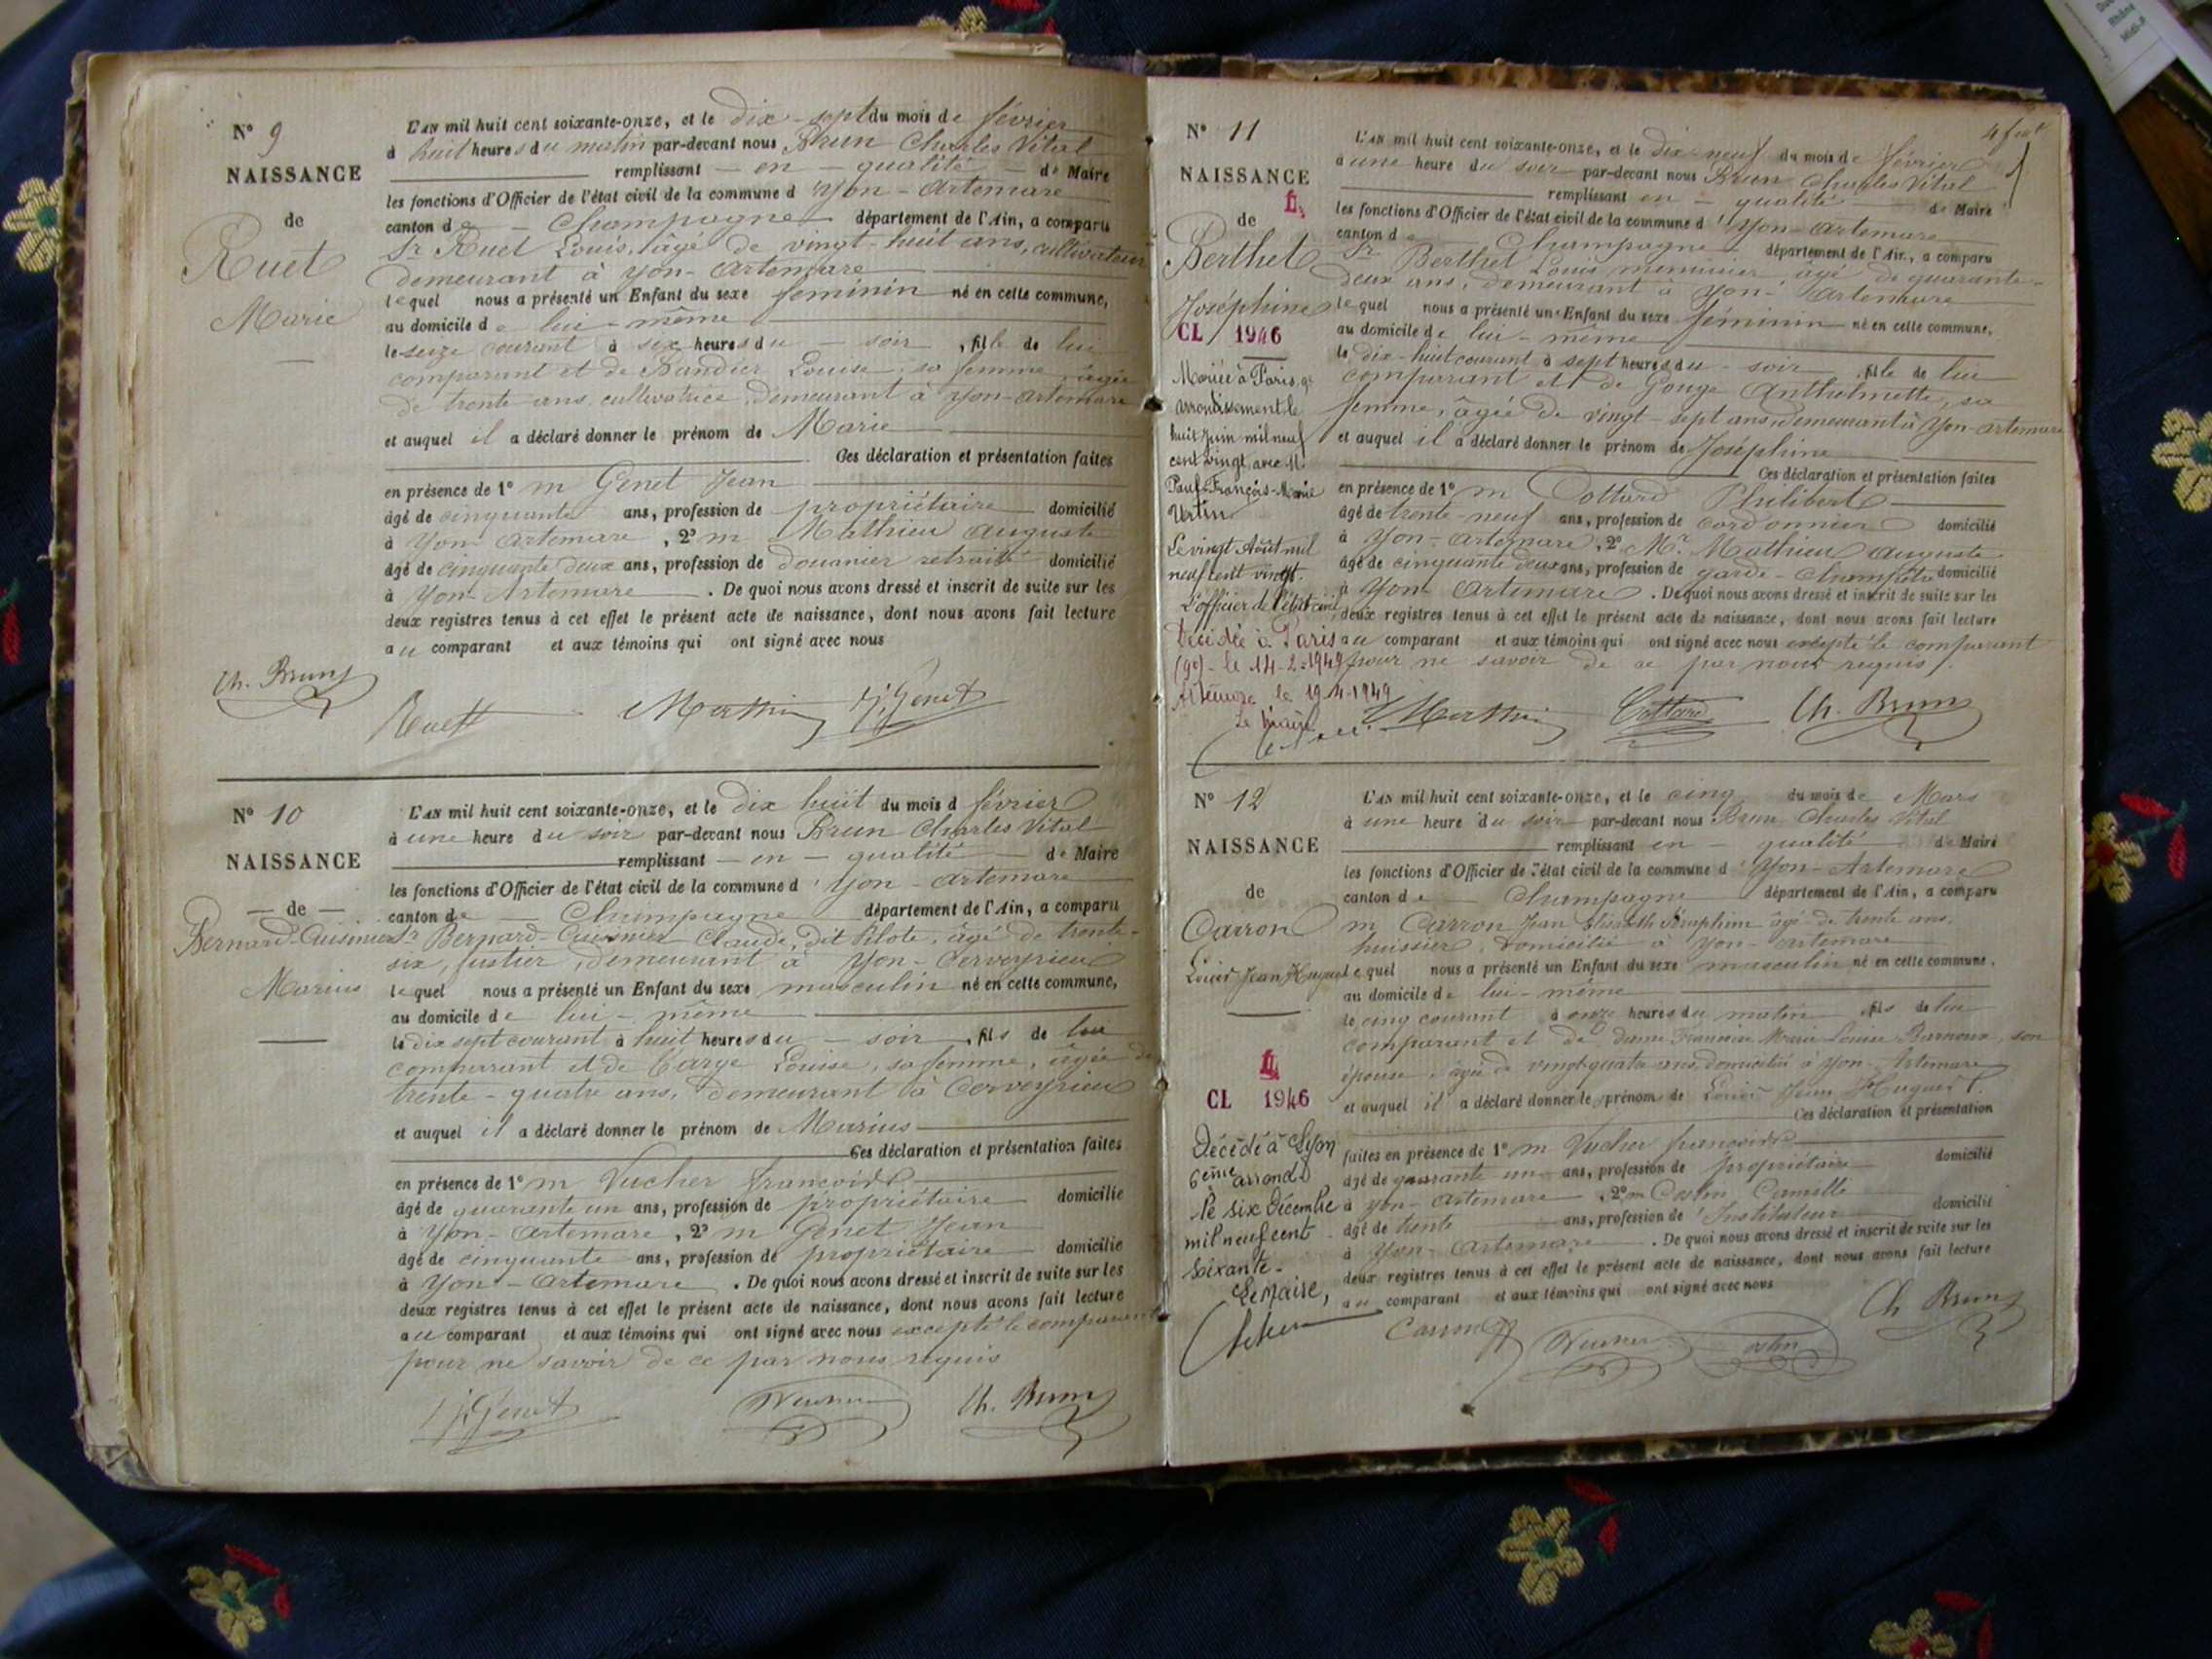 N° 9
NAISSANCE
de
Ruet
Marie
L'AN mil huit cent soixante-onze, et le dix-sept du mois de février
à huit heures du matin par-devant nous Brun Charles Vital
remplissant en qualité de Maire
les fonctions d'Officier de l'état civil de la commune d'Yon-Artemare
canton de Champagne département de l'Ain, a comparu
Sr Ruet Louis, âgé de vingt-huit ans, cultivateur
demeurant à Yon-Artemare
lequel nous a présenté un Enfant du sexe féminin né en cette commune,
au domicile de lui-même
le seize courant à six heures du soir, fille de lui
comparant et de Bandier Louise, sa femme, âgée
de trente ans, cultivatrice, demeurant à Yon-Artemare
et auquel il a déclaré donner le prénom de Marie
Ces déclaration et présentation faites
en présence de 1° m Genet Jean
âgé de cinquante ans, profession de propriétaire domicilié
à Yon Artemare, 2° m Mathieu Auguste
âgé de cinquante deux ans, profession de douanier retraité domicilié
à Yon-Artemare. De quoi nous avons dressé et inscrit de suite sur les
deux registres tenus à cet effet le présent acte de naissance, dont nous avons fait lecture
au comparant et aux témoins qui ont signé avec nous
Ch. Brun
Ruet Mathieu J. Genet
N° 10
NAISSANCE
de
Bernard-Cuisinier
Marius
L'AN mil huit cent soixante-onze, et le dix huit du mois d février
à une heure du soir par-devant nous Brun Charles Vital
remplissant en qualité de Maire
les fonctions d'Officier de l'état civil de la commune d'Yon-Artemare
canton de Champagne département de l'Ain, a comparu
Sr Bernard-Cuisinier Claude, dit Pilote, âgé de trente-
six, fustier, demeurant à Yon-Cerveyrieu
lequel nous a présenté un Enfant du sexe masculin né en cette commune,
au domicile de lui-même
le dix sept courant à huit heures du soir, fils de lui
comparant et de Barge Louise, sa femme, âgée de
trente-quatre ans, demeurant à Cerveyrieu
et auquel il a déclaré donner le prénom de Marius
Ces déclaration et présentation faites
en présence de 1° m Vucher François
âgé de quarante un ans, profession de propriétaire domicilié
à Yon-Artemare, 2° m Genet Jean
âgé de cinquante ans, profession de propriétaire domicilié
à Yon-Artemare. De quoi nous avons dressé et inscrit de suite sur les
deux registres tenus à cet effet le présent acte de naissance, dont nous avons fait lecture
au comparant et aux témoins qui ont signé avec nous excepté le comparant
pour ne savoir de ce par nous requis
J. Genet Vucher Ch. Brun
N° 11
NAISSANCE
de
Berthet
Joséphine
CL 1946
Mariée à Paris, 9e
arrondissement le
huit juin mil neuf
cent vingt, avec M.
Paul-François-Marie
Urtin
Le vingt Août mil
neuf cent vingt.
L'officier de l'état civil,
Décédée à Paris
(9e) - le 14-2-1949
Artemare le 19-4-1949
Le Maire
L'AN mil huit cent soixante-onze, et le dix-neuf du mois de février
à une heure du soir par-devant nous Brun Charles Vital
remplissant en qualité de Maire
les fonctions d'Officier de l'état civil de la commune d'Yon-Artemare
canton de Champagne département de l'Ain, a comparu
Sr Berthet Louis, menuisier, âgé de quarante-
deux ans, demeurant à Yon-Artemare
lequel nous a présenté un Enfant du sexe féminin né en cette commune,
au domicile de lui-même
le dix-huit courant à sept heures du soir, fille de lui
comparant et de Gouge Anthelmette, sa
femme, âgée de vingt-sept ans, demeurant à Yon-Artemare
et auquel il a déclaré donner le prénom de Joséphine
Ces déclaration et présentation faites
en présence de 1° m Cottard Philibert
âgé de trente-neuf ans, profession de cordonnier domicilié
à Yon-Artemare, 2° Mr Mathieu Auguste
âgé de cinquante deux ans, profession de garde-champêtre domicilié
à Yon Artemare. De quoi nous avons dressé et inscrit de suite sur les
deux registres tenus à cet effet le présent acte de naissance, dont nous avons fait lecture
au comparant et aux témoins qui ont signé avec nous excepté le comparant
pour ne savoir de ce par nous requis.
Mathieu Cottard Ch. Brun
N° 12
NAISSANCE
de
Carron
Louis Jean Hugues
CL 1946
Décédé à Lyon
6ème arrondt
le six Décembre
mil neuf cent
soixante.
Le Maire,
L'AN mil huit cent soixante-onze, et le cinq du mois de Mars
à une heure du soir par-devant nous Brun Charles Vital
remplissant en qualité de Maire
les fonctions d'Officier de l'état civil de la commune d'Yon-Artemare
canton de Champagne département de l'Ain, a comparu
m Carron Jean Elisabeth Séraphin âgé de trente ans,
huissier, domicilié à Yon-Artemare
lequel nous a présenté un Enfant du sexe masculin né en cette commune,
au domicile de lui-même
le cinq courant à onze heures du matin, fils de lui
comparant et de dame Marie Louise, son
épouse, âgée de vingt-quatre ans, domiciliés à Yon-Artemare
et auquel il a déclaré donner le prénom de Louis Jean Hugues
Ces déclaration et présentation
faites en présence de 1° m Vucher François
âgé de quarante un ans, profession de propriétaire domicilié
à Yon-Artemare, 2° m Costin Camille
âgé de trente ans, profession d'Instituteur domicilié
à Yon-Artemare. De quoi nous avons dressé et inscrit de suite sur les
deux registres tenus à cet effet le présent acte de naissance, dont nous avons fait lecture
au comparant et aux témoins qui ont signé avec nous
Carron Vucher Costin Ch Brun